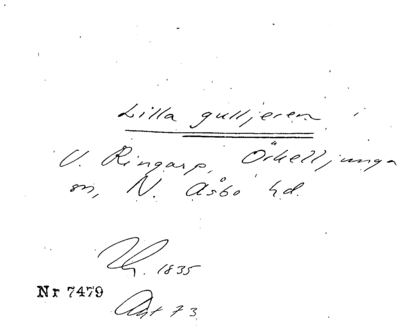 Lilla gulljeren
V. Ringarp, Örkelljunga
sn, N. Åsbo hd.
1835
Nr 7479
Akt 73